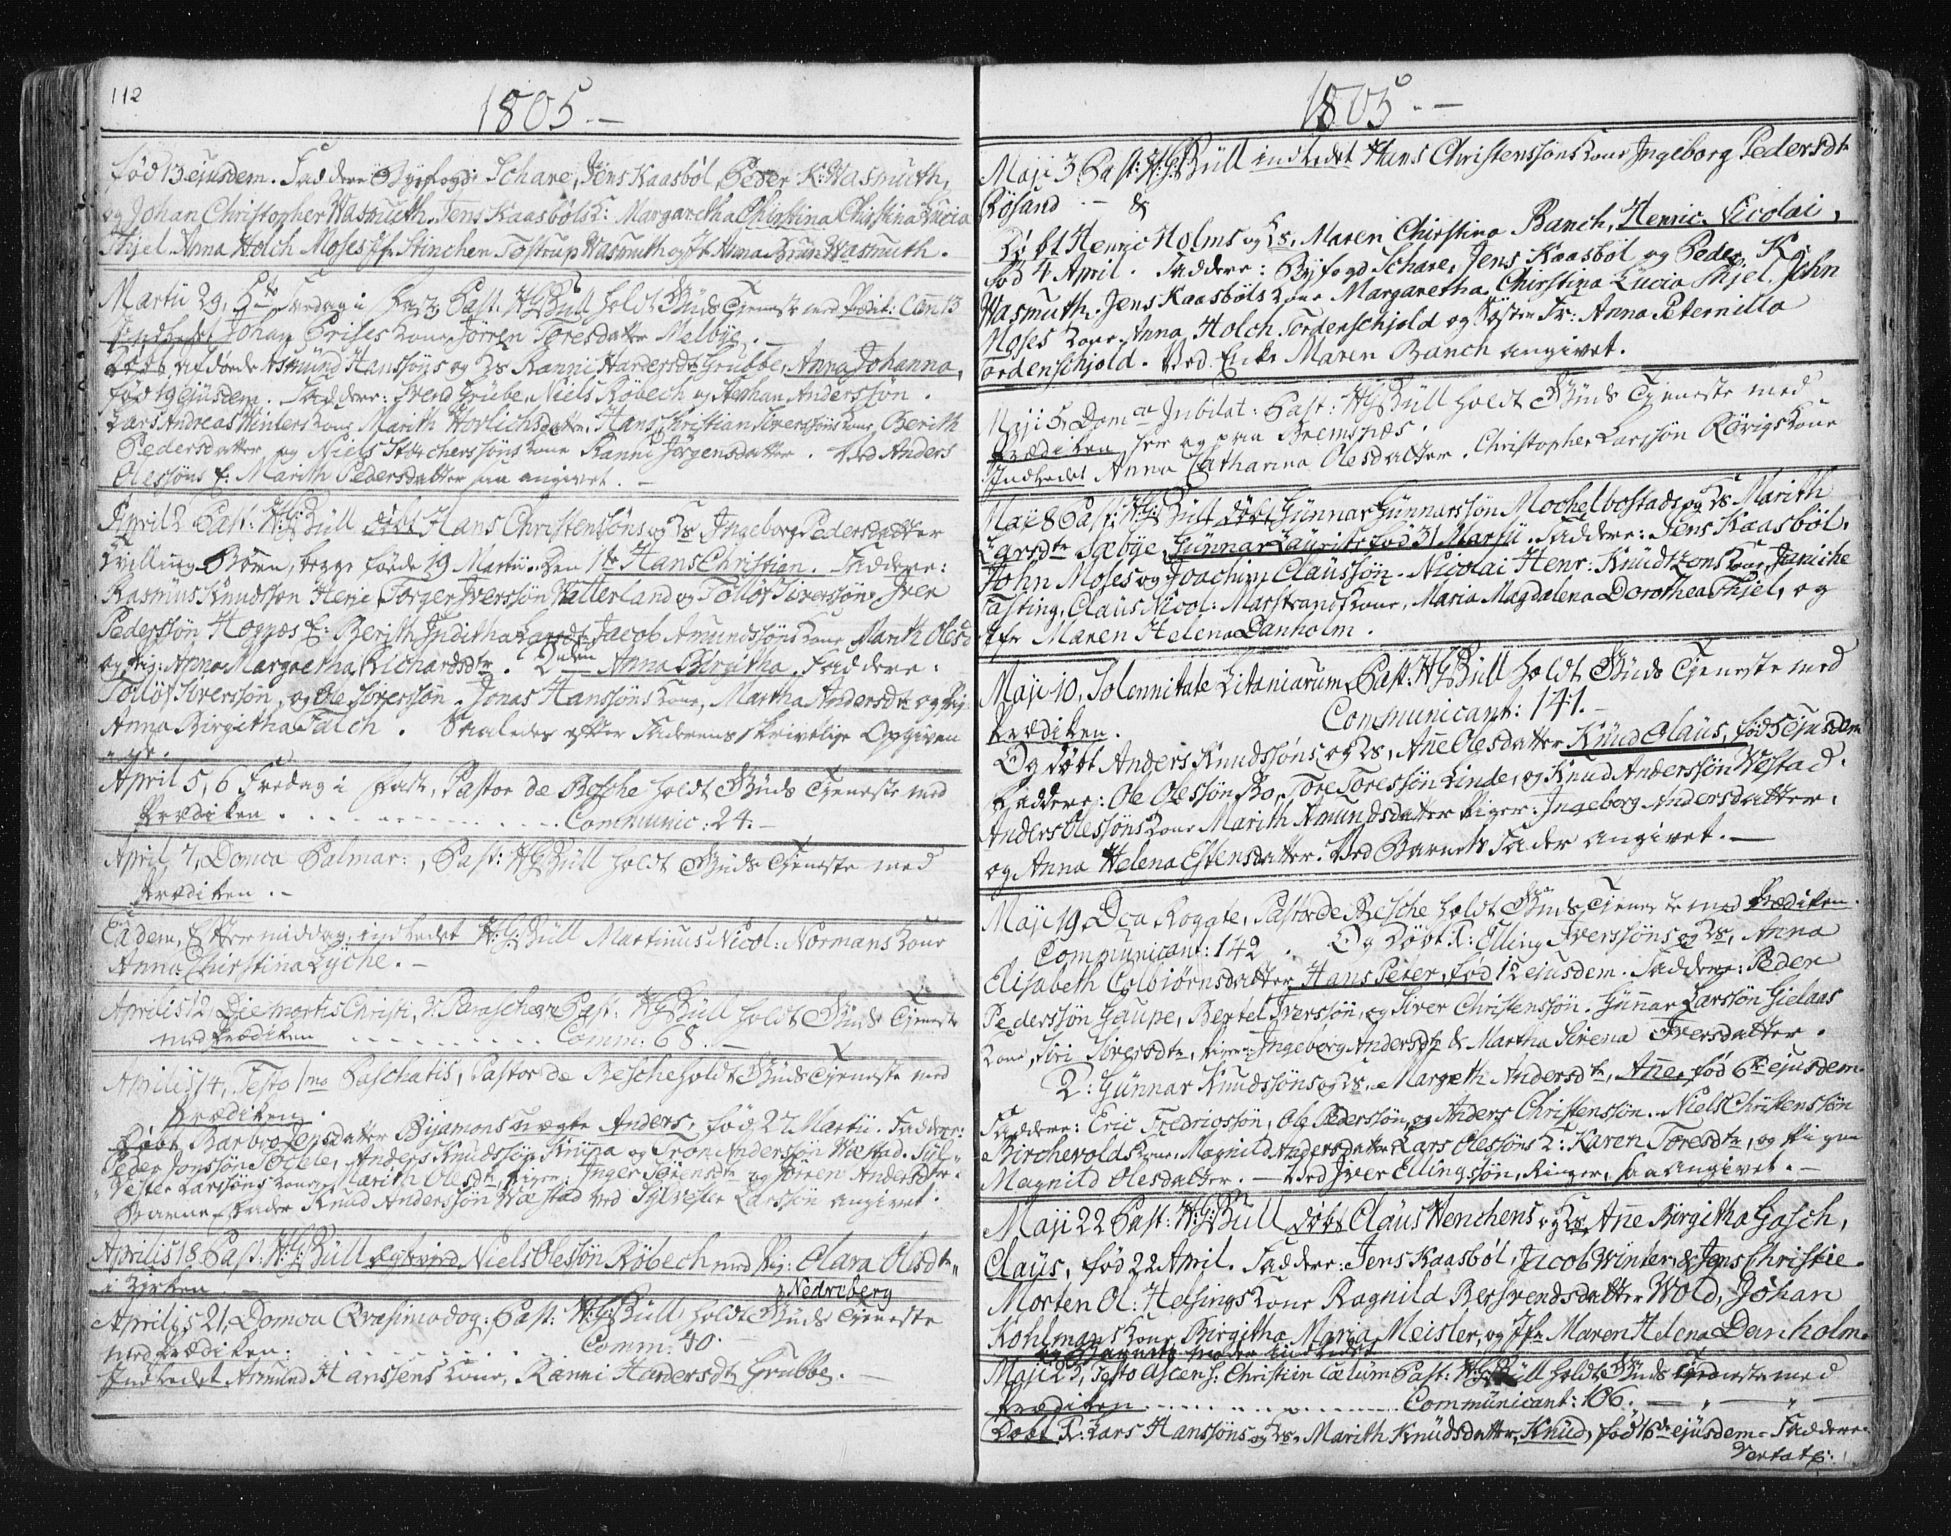 112
1805.-
fød 13 ejusdem. Faddere Byefogd: Schare, Jens Kaasbøl, Peder K: Wasmuth,
og Johan Christopher Wasmuth. Jens Kaasbøls K: Margaretha Chirstina Lucia
Thjel. Anna Holch Moses Jfr Stinchen Tostrup Wasmuth og Jfr Anna Brun Wasmuth.
Martii 29, 5te Fredag i Faste, Past: HG Büll holdt Guds Tjeneste med Prædik: Com 13
Indledet Johan Prises Kone Sørren Toresdatter Melbye.
Døbt afdøde Asmund Hanssøns og Hs Ranni Hardersdtr Grubbe, Anna Johanna,
fød 19 ejusdem. Faddere: Svend Grube, Niels Røbech og Stephan Anderssøn.
Lars Andreas Winters Kone Marith Hovlichsdatter. Hans Christian Iverssøns Kone, Berith
Pedersdatter og Niels Størcherssøns Kone Ranni Jørgensdatter. Ved Anders
Olessøns K: Marith Pedersdatter saa angivet.
April 2 Past: HG Büll døbt Hans Christenssøns og Hs Ingeborg Pedersdatter
Tvilling Børn, begge fødde 19 Martii. Den 1te Hans Christian. Faddere:
Rasmus Knudsson Henje, Torger Iverssøn Watterland og Tolløf Siverssøn. Iver
Pederssøn Hognæs K: Berith Juditha Larsdtr Jacob Amundssøns Kone Marith Olesd
og Pig: Anna Margretha Richardsdtr. 2den Anna Birgitha. Faddere:
Tolløf Siverssøn, og Ole Sørenssøn. Jonas Hanssøns Kone, Martha Andersdtr og Pig:
Anna Birgitha Falch. Saaledes efter Faderens skrivelige Opgiven
else.
April 5, 6 Fredag i Faste, Pastor de Besche holdt Guds Tjeneste med
Prædiken. Communic: 24.-
April 7, Domca Palmar:, Past: HG Büll holdt Guds Tjeneste med
Prædiken.-
Eadem, Eftermiddag, indledet HG Büll Martinus Nicol: Normans Kone
Anna Chirstina Lyche.-
Aprilis 12 Die mortis Christi, v: Parascheve Past: HG Büll holdt Guds Tjeneste
med Prædiken Comm: 68.-
Aprilis 14, Festo 1mo Paschatis, Pastor de Besche holdt Guds Tjeneste med
Prædiken.
Døbt Barbro Jensdatter Bijamons uægte Anders, fød 27 Martii. Faddere:
Peder Jonssøn Tøfele, Anders Knudssøn Knina og Tron Anderssøn Wæstad. Syl-
vester Larssøns Kone, Marith Olesdtr, Piger: Inger Sørensdtr og Sørren Andersdtr.
Barnefader Knud Anderssøn Wæstad ved Sylvester Larssøn angivet.
Aprilis 18 Past: HG Büll Egteviede Niels Olessøn Røbech med Pig: Clara Olesdtr
i Kirken.- Nedreberg
Aprilis 21, Domca Qvasimodog: Past: HG Büll holdt Guds Tjeneste
med Prædiken: Comm: 40.
Indledet Asmund Hanssens Kone, Ranni Hardersdtr Grubbe.-
1805.-
Maji 3 Past: HG Büll indledet Hans Christenssøns Kone Ingeborg Pedersdtr
Røsand.- &
Døbt Henric Holms og Hs, Maren Chirstina Banch, Henric Nicolai,
fød 4 April. Faddere: Byfogd Schare, Jens Kaasbøl og Peder K:
Wasmuth. Jens Kaasbøls Kone Margaretha Chirstina Lucia Thjel. John
Moses Kone Anna Holch. Tordenschjold og Søster Fr: Anna Peternilla
ordenschjold. Ved Enke Maren Banch angivet.
Maji 5 Domca Jubilat: Past: HG Büll holdt Guds Tjeneste med
Prædiken her og paa Bremsnæs.
Indledet Anna Catharina Olesdatter. Christopher Larssøn Rørigs Kone
Maji 8 Past: HG Büll døbt Günnar Günnarssøn Mochelbostads og Hs Marith
Larsdtr Sæbye, Günnar Laurits fød 31 Martii. Faddere: Jens Kaasbøl,
John Moses og Joachim Claussøn. Nicolai Henr: Knudtzons Kone Janiche
Fasting, Claus Nicol: Marstrands Kone, Maria Magdalena Dorothea Thjel, og
Jfr Maren Helena Danholm.
Maji 10, Solennitate Litaniarum, Past: HG Büll holdt Guds Tjeneste med
Prædiken. Communicant: 141.-
Og døbt Anders Knudssøns og Hs, Ane Olesdatter Knud Claus, fød 5 ejusdem
Faddere: Ole Olessøn Bo, Tore Toressøn Linde, og Knud Anderssøn Vestad.
Anders Olessøns Kone Marith Amundsdatter Piger: Ingeborg Andersdatter.
og Anna Helena Estensdatter. Ved Barnets Fader angivet.-
Maji 19, Dca Rogate, Pastor de Besche holdt Guds Tjeneste med Prædiken.
Communicant: 142. Og døbt 1: Elling Iverssøns og Hs, Anna
Elisabeth Colbiørnsdatter, Hans Peter, fød 12 ejusdem. Faddere: Peder
Pederssøn Gaupe, Bertel Iverssøn, og Siver Christenssøn. Günnar Larssøn Gielaas
Kone, Siri Siversdtr, Piger: Ingeborg Andersdtr & Martha Sirena Iversdatter.
2: Günnar Knudssøns og Hs, Margreth Andersdtr, Ane, fød 6te ejusdem.
Faddere: Eric Fredrigssøn, Ole Pederssøn, og Anders Christenssøn. Niels Christenssøn
Bircherolds Kone, Magnild Andersdatter Lars Olessøns K: Karen Toresdtr, og Pigen
Magnild Olesdatter.- Ved Iver Ellingssøn, Ringer, saa angivet.-
Maji 22 Past: HG Büll døbt Claus Henchens og Hs Ane Birgitha Gasch,
Claus, fød 22 April. Faddere: Jens Kaasbøl, Jacob Winter & Jens Christie.
Morten Ol: Helsings Kone Ragnild Bersvendsdatter Wold, Johan
Kohlmans Kone Birgitha Maria Meisler, og Jfr Maren Helena Danholm.
og Barnets Moder indledet
Maji 23, Festo Ascens: Christi in cælum Past: HG Büll holdt Guds Tjeneste med
Prædiken Communicant: 106.-
Døbt 1: Lars Hanssøns og Hs, Marith Knudsdatter, Knud, fød 16de ejusdem. Faddere.
Vertatr: